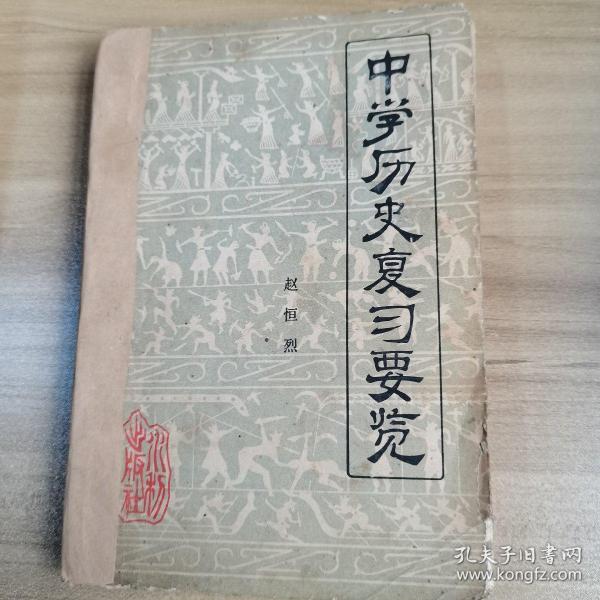 中学历史复习要览
赵恒烈
水利
出版社
孔夫子旧书网
www.kongfz.com